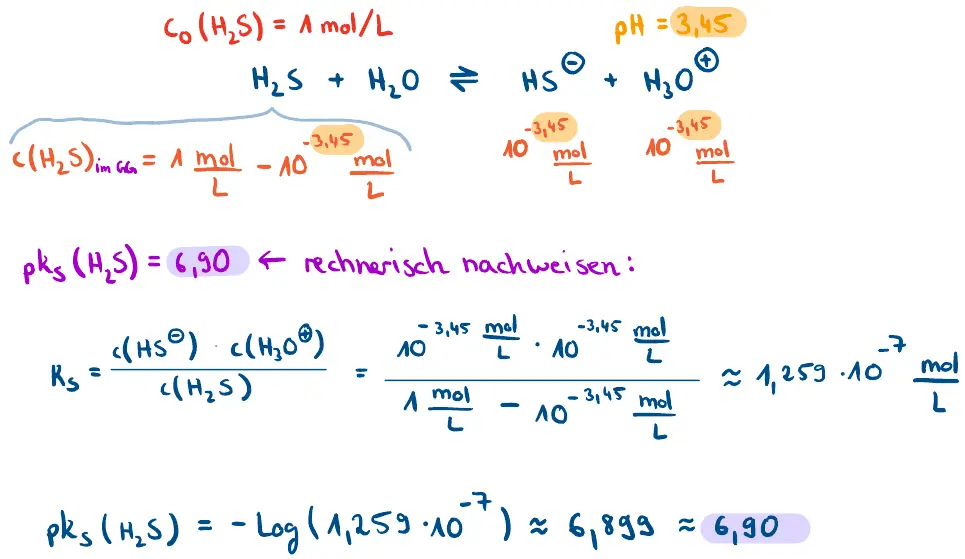 c₀(H₂S) = 1 mol/L pH = 3,45
H₂S + H₂O ⇌ HS⊖ + H₃O⊕
c(H₂S)im GG = 1 mol/L − 10^-3,45 mol/L 10^-3,45 mol/L 10^-3,45 mol/L
pks(H₂S) = 6,90 ← rechnerisch nachweisen:
Ks = c(HS⊖) · c(H₃O⊕) / c(H₂S) = 10^-3,45 mol/L · 10^-3,45 mol/L / 1 mol/L − 10^-3,45 mol/L ≈ 1,259 · 10^-7 mol/L
pks(H₂S) = -Log(1,259 · 10^-7) ≈ 6,899 ≈ 6,90